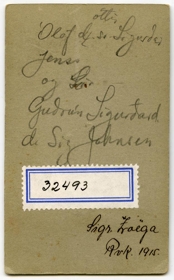 ottir
Ólöf dr. sr. Sigurðar
Jens
og
Guðrún Sigurðard
d. Sig Johnsen
32493
Sigr Zoëga
Rvk. 1915.